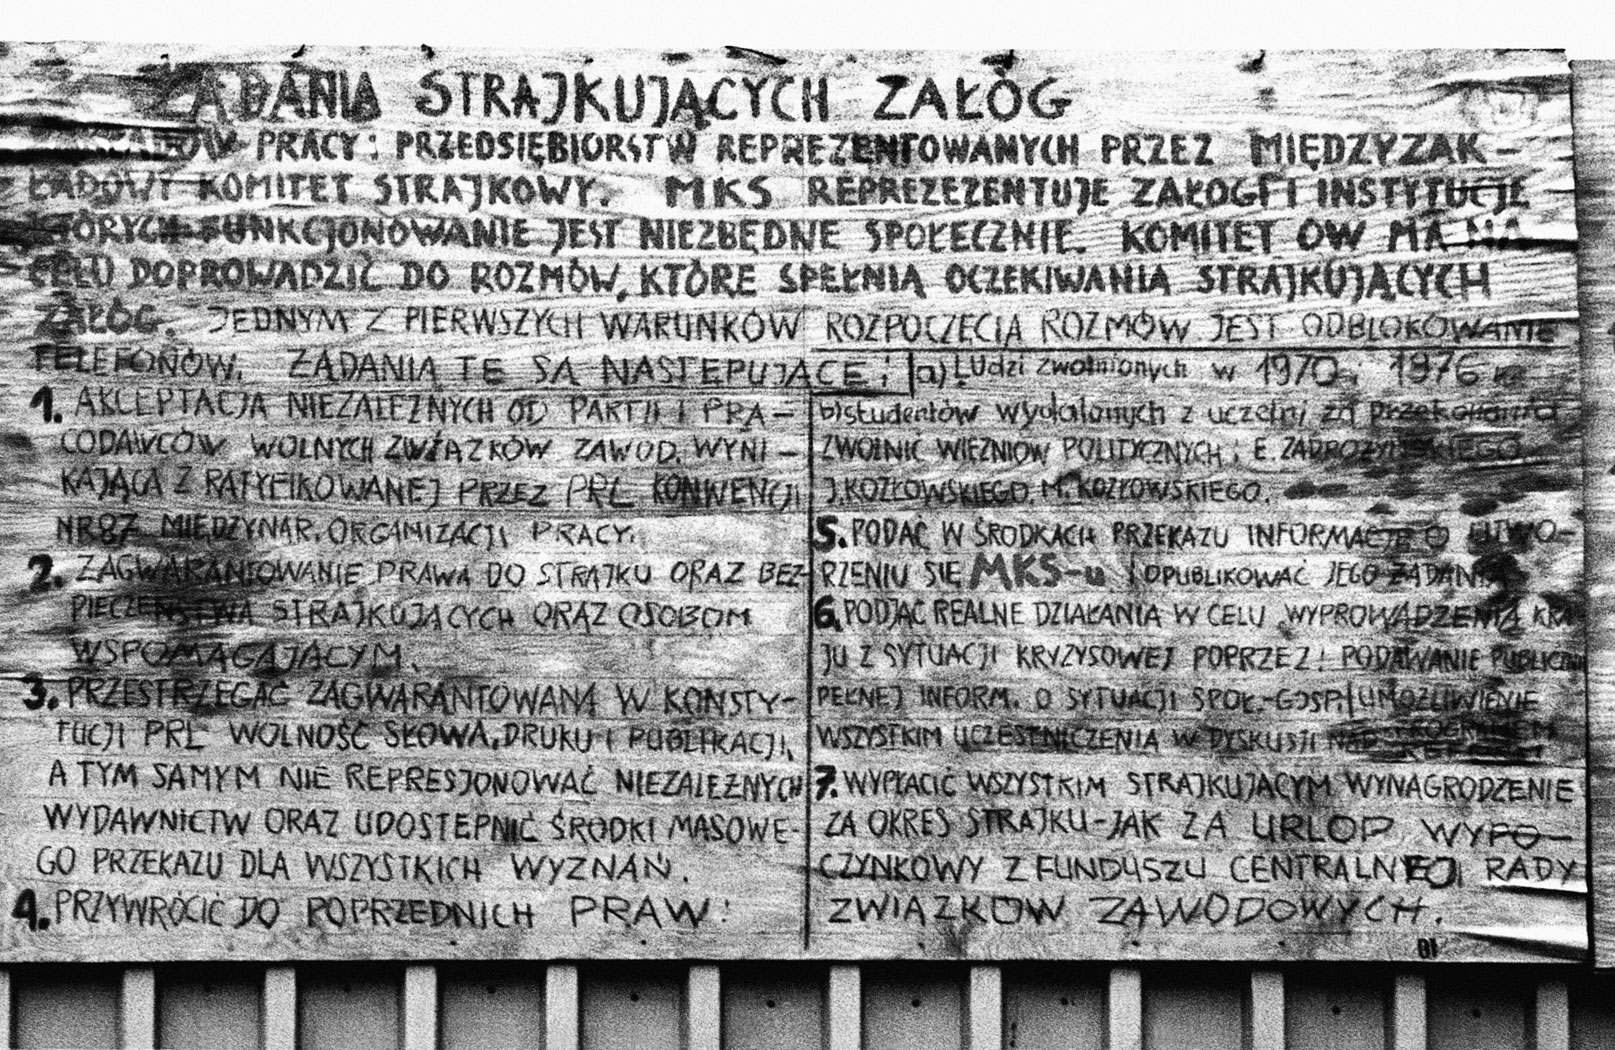 ŻĄDANIA STRAJKUJĄCYCH ZAŁÓG
PRACY; PRZEDSIĘBIORSTW REPREZENTOWANYCH PRZEZ MIĘDZYZAK-
ŁADOWY KOMITET STRAJKOWY. MKS REPREZEZENTUJE ZAŁOGI I INSTYTUCJE
KTÓRYCH FUNKCJONOWANIE JEST NIEZBĘDNE SPOŁECZNIE. KOMITET ÓW MA NA
CELU DOPROWADZIĆ DO ROZMÓW, KTÓRE SPEŁNIĄ OCZEKIWANIA STRAJKUJĄCYCH
ZAŁÓG. JEDNYM Z PIERWSZYCH WARUNKÓW ROZPOCZĘCIA ROZMÓW JEST ODBLOKOWANIE
TELEFONÓW. ŻĄDANIA TE SĄ NASTĘPUJĄCE:
1. AKCEPTACJA NIEZALEŻNYCH OD PARTII I PRA-
CODAWCÓW WOLNYCH ZWIĄZKÓW ZAWOD. WYNI-
KAJĄCA Z RATYFIKOWANEJ PRZEZ PRL KONWENCJI
NR87 MIĘDZYNAR. ORGANIZACJI PRACY.
2. ZAGWARANTOWANIE PRAWA DO STRAJKU ORAZ BEZ-
PIECZEŃSTWA STRAJKUJĄCYCH ORAZ OSOBOM
WSPOMAGAJĄCYM.
3. PRZESTRZEGAĆ ZAGWARANTOWANĄ W KONSTY-
TUCJI PRL WOLNOŚĆ SŁOWA, DRUKU I PUBLIKACJI,
A TYM SAMYM NIE REPRESJONOWAĆ NIEZALEŻNYCH
WYDAWNICTW ORAZ UDOSTĘPNIĆ ŚRODKI MASOWE-
GO PRZEKAZU DLA WSZYSTKICH WYZNAŃ.
4. PRZYWRÓCIĆ DO POPRZEDNICH PRAW:
a) Ludzi zwolnionych w 1970 i 1976 r.
b)studentów wydalonych z uczelni za przekonania
ZWOLNIĆ WIĘŹNIÓW POLITYCZNYCH; E. ZADROŻYŃSKIEGO
J. KOZŁOWSKIEGO, M. KOZŁOWSKIEGO.
5. PODAĆ W ŚRODKACH PRZEKAZU INFORMACJĘ O UTWO-
RZENIU SIĘ MKS-u I OPUBLIKOWAĆ JEGO ŻĄDANIA
6. PODJĄĆ REALNE DZIAŁANIA W CELU WYPROWADZENIA KRA
JU Z SYTUACJI KRYZYSOWEJ POPRZEZ: PODAWANIE PUBLICZNIE
PEŁNEJ INFORM. O SYTUACJI SPOŁ.-GOSP. UMOŻLIWIENIE
WSZYSTKIM UCZESTNICZENIA W DYSKUSJI NAD PROGRAMEM
REFORM
7. WYPŁACIĆ WSZYSTKIM STRAJKUJĄCYM WYNAGRODZENIE
ZA OKRES STRAJKU-JAK ZA URLOP WYPO-
CZYNKOWY Z FUNDUSZU CENTRALNEJ RADY
ZWIĄZKÓW ZAWODOWYCH.